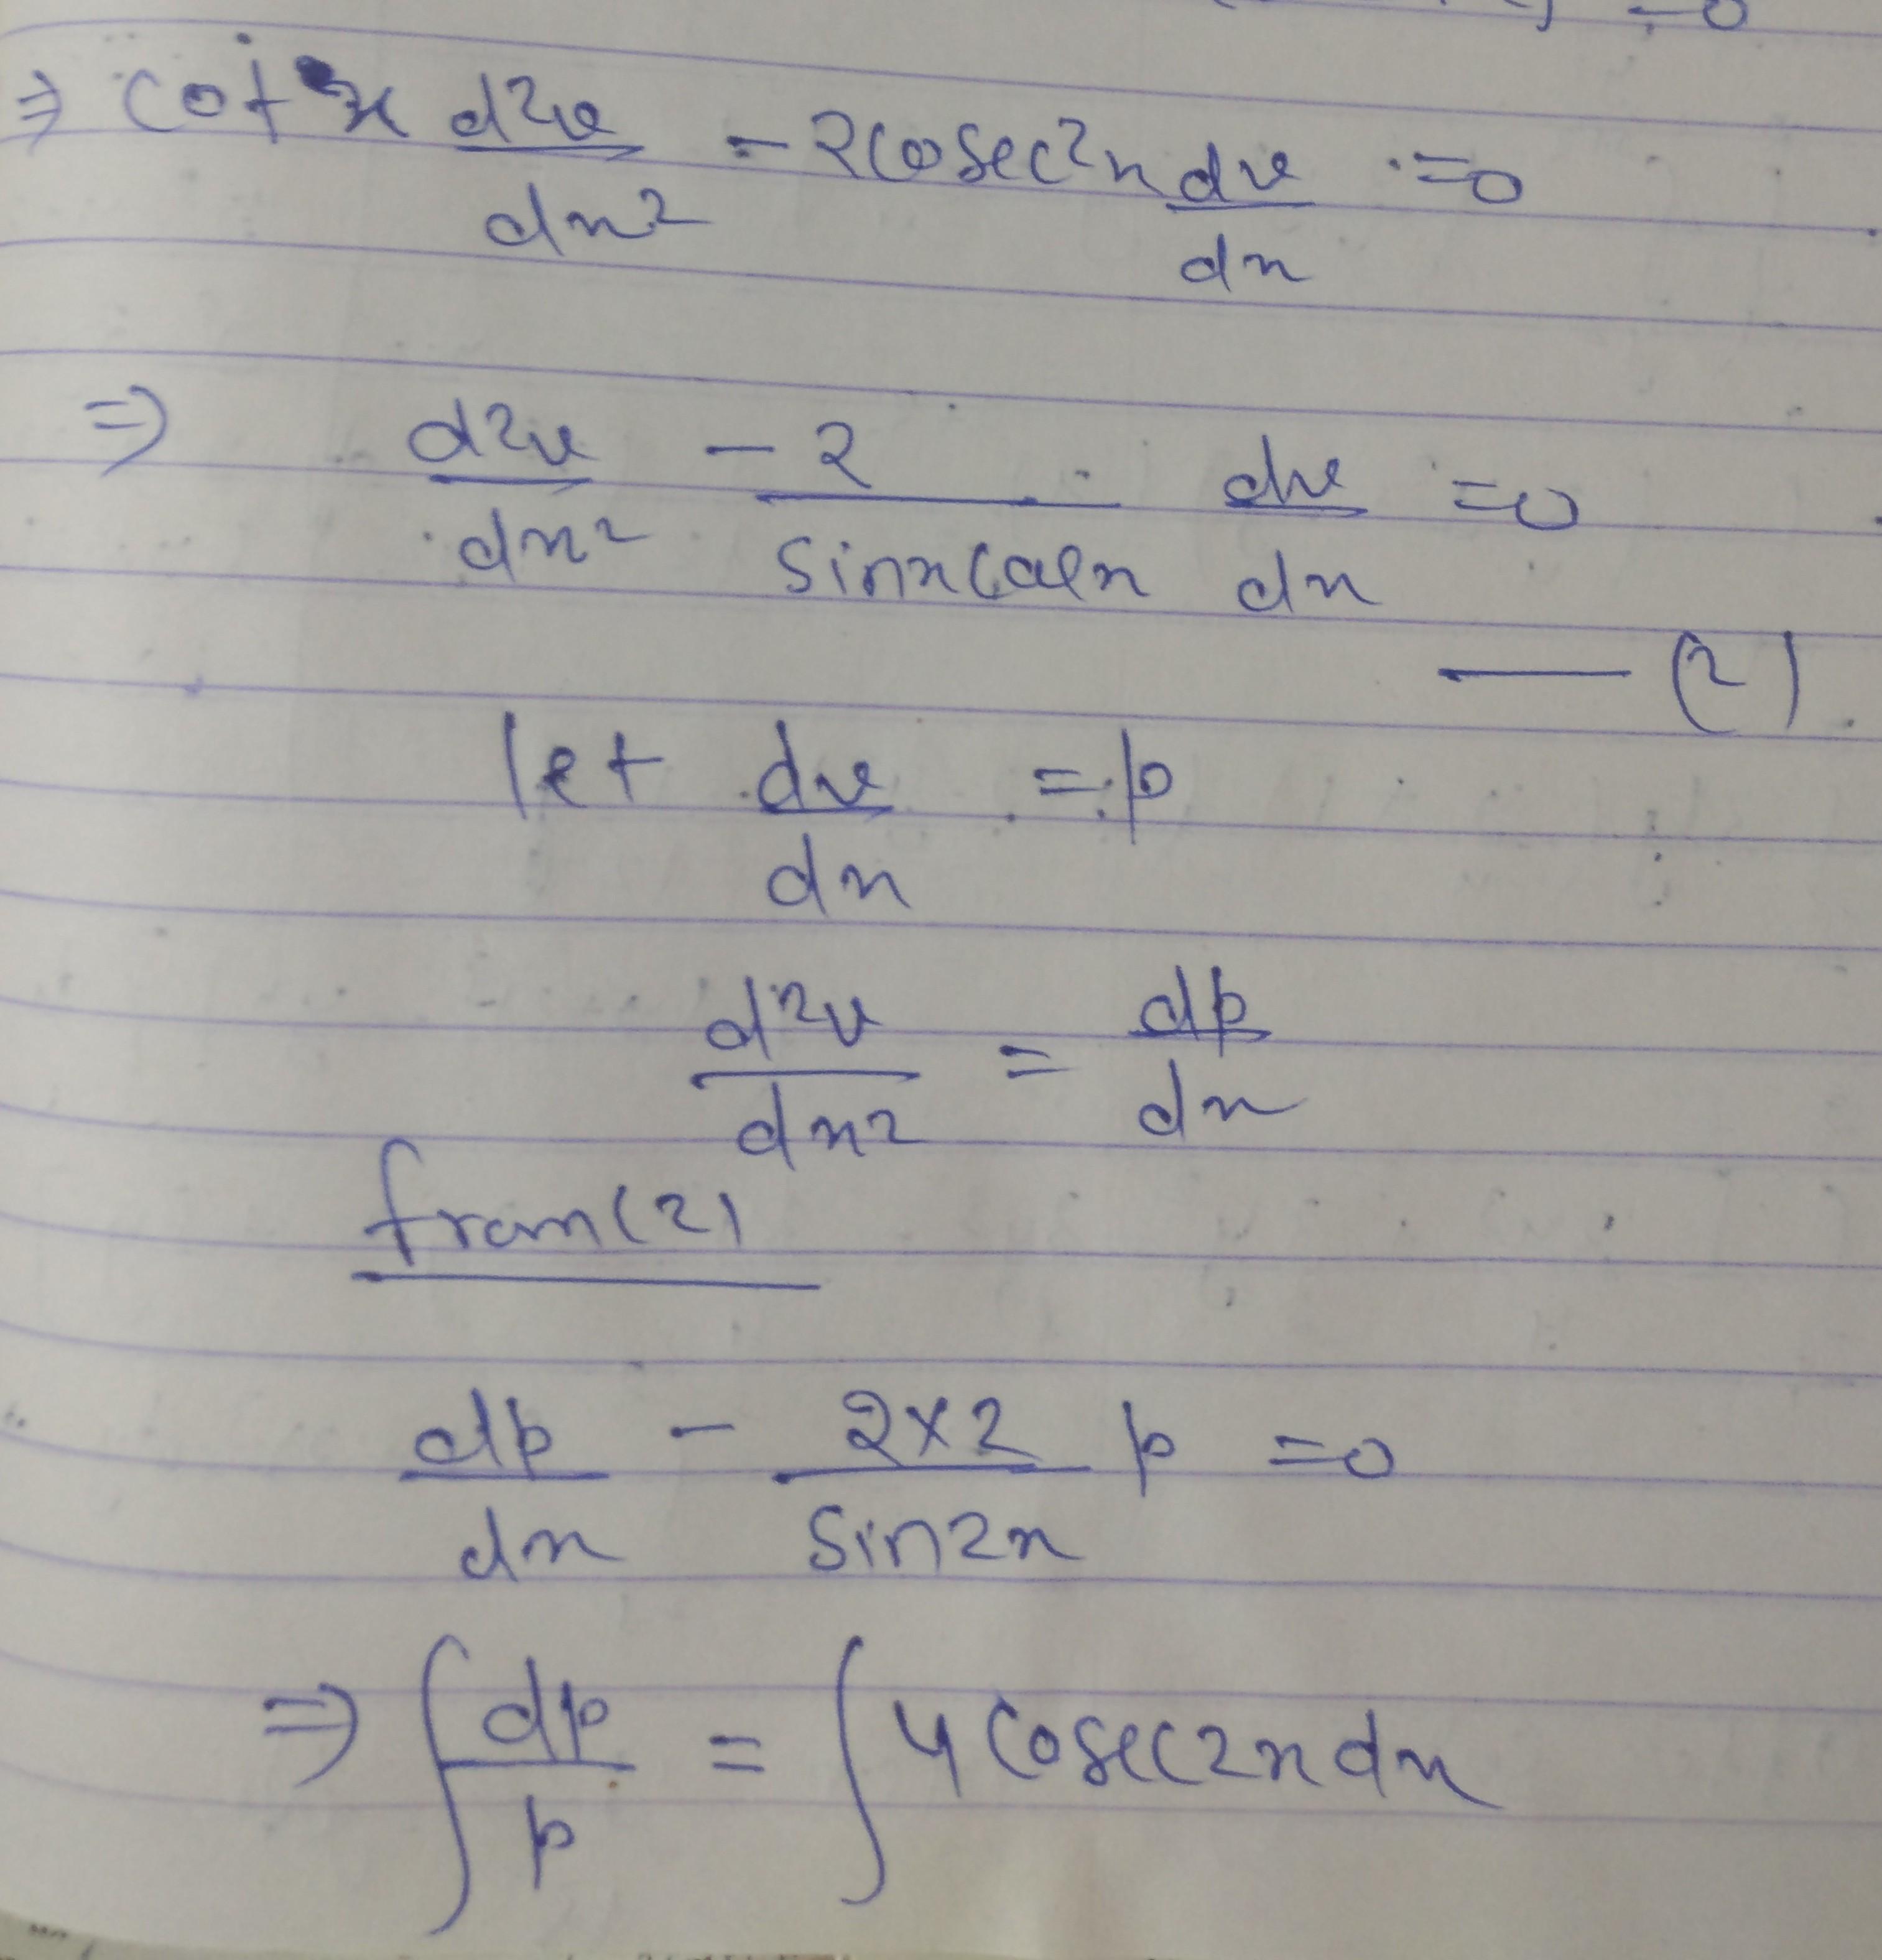 ⇒ cot x d²v/dx² - 2cosec²x dv/dx = 0
⇒ d²v/dx² - 2/(sinx cosx) dv/dx = 0
— (2)
let dv/dx = p
d²v/dx² = dp/dx
from (2)
dp/dx - (2×2)/(sin2x) p = 0
⇒ ∫ dp/p = ∫ 4 cosec2x dx